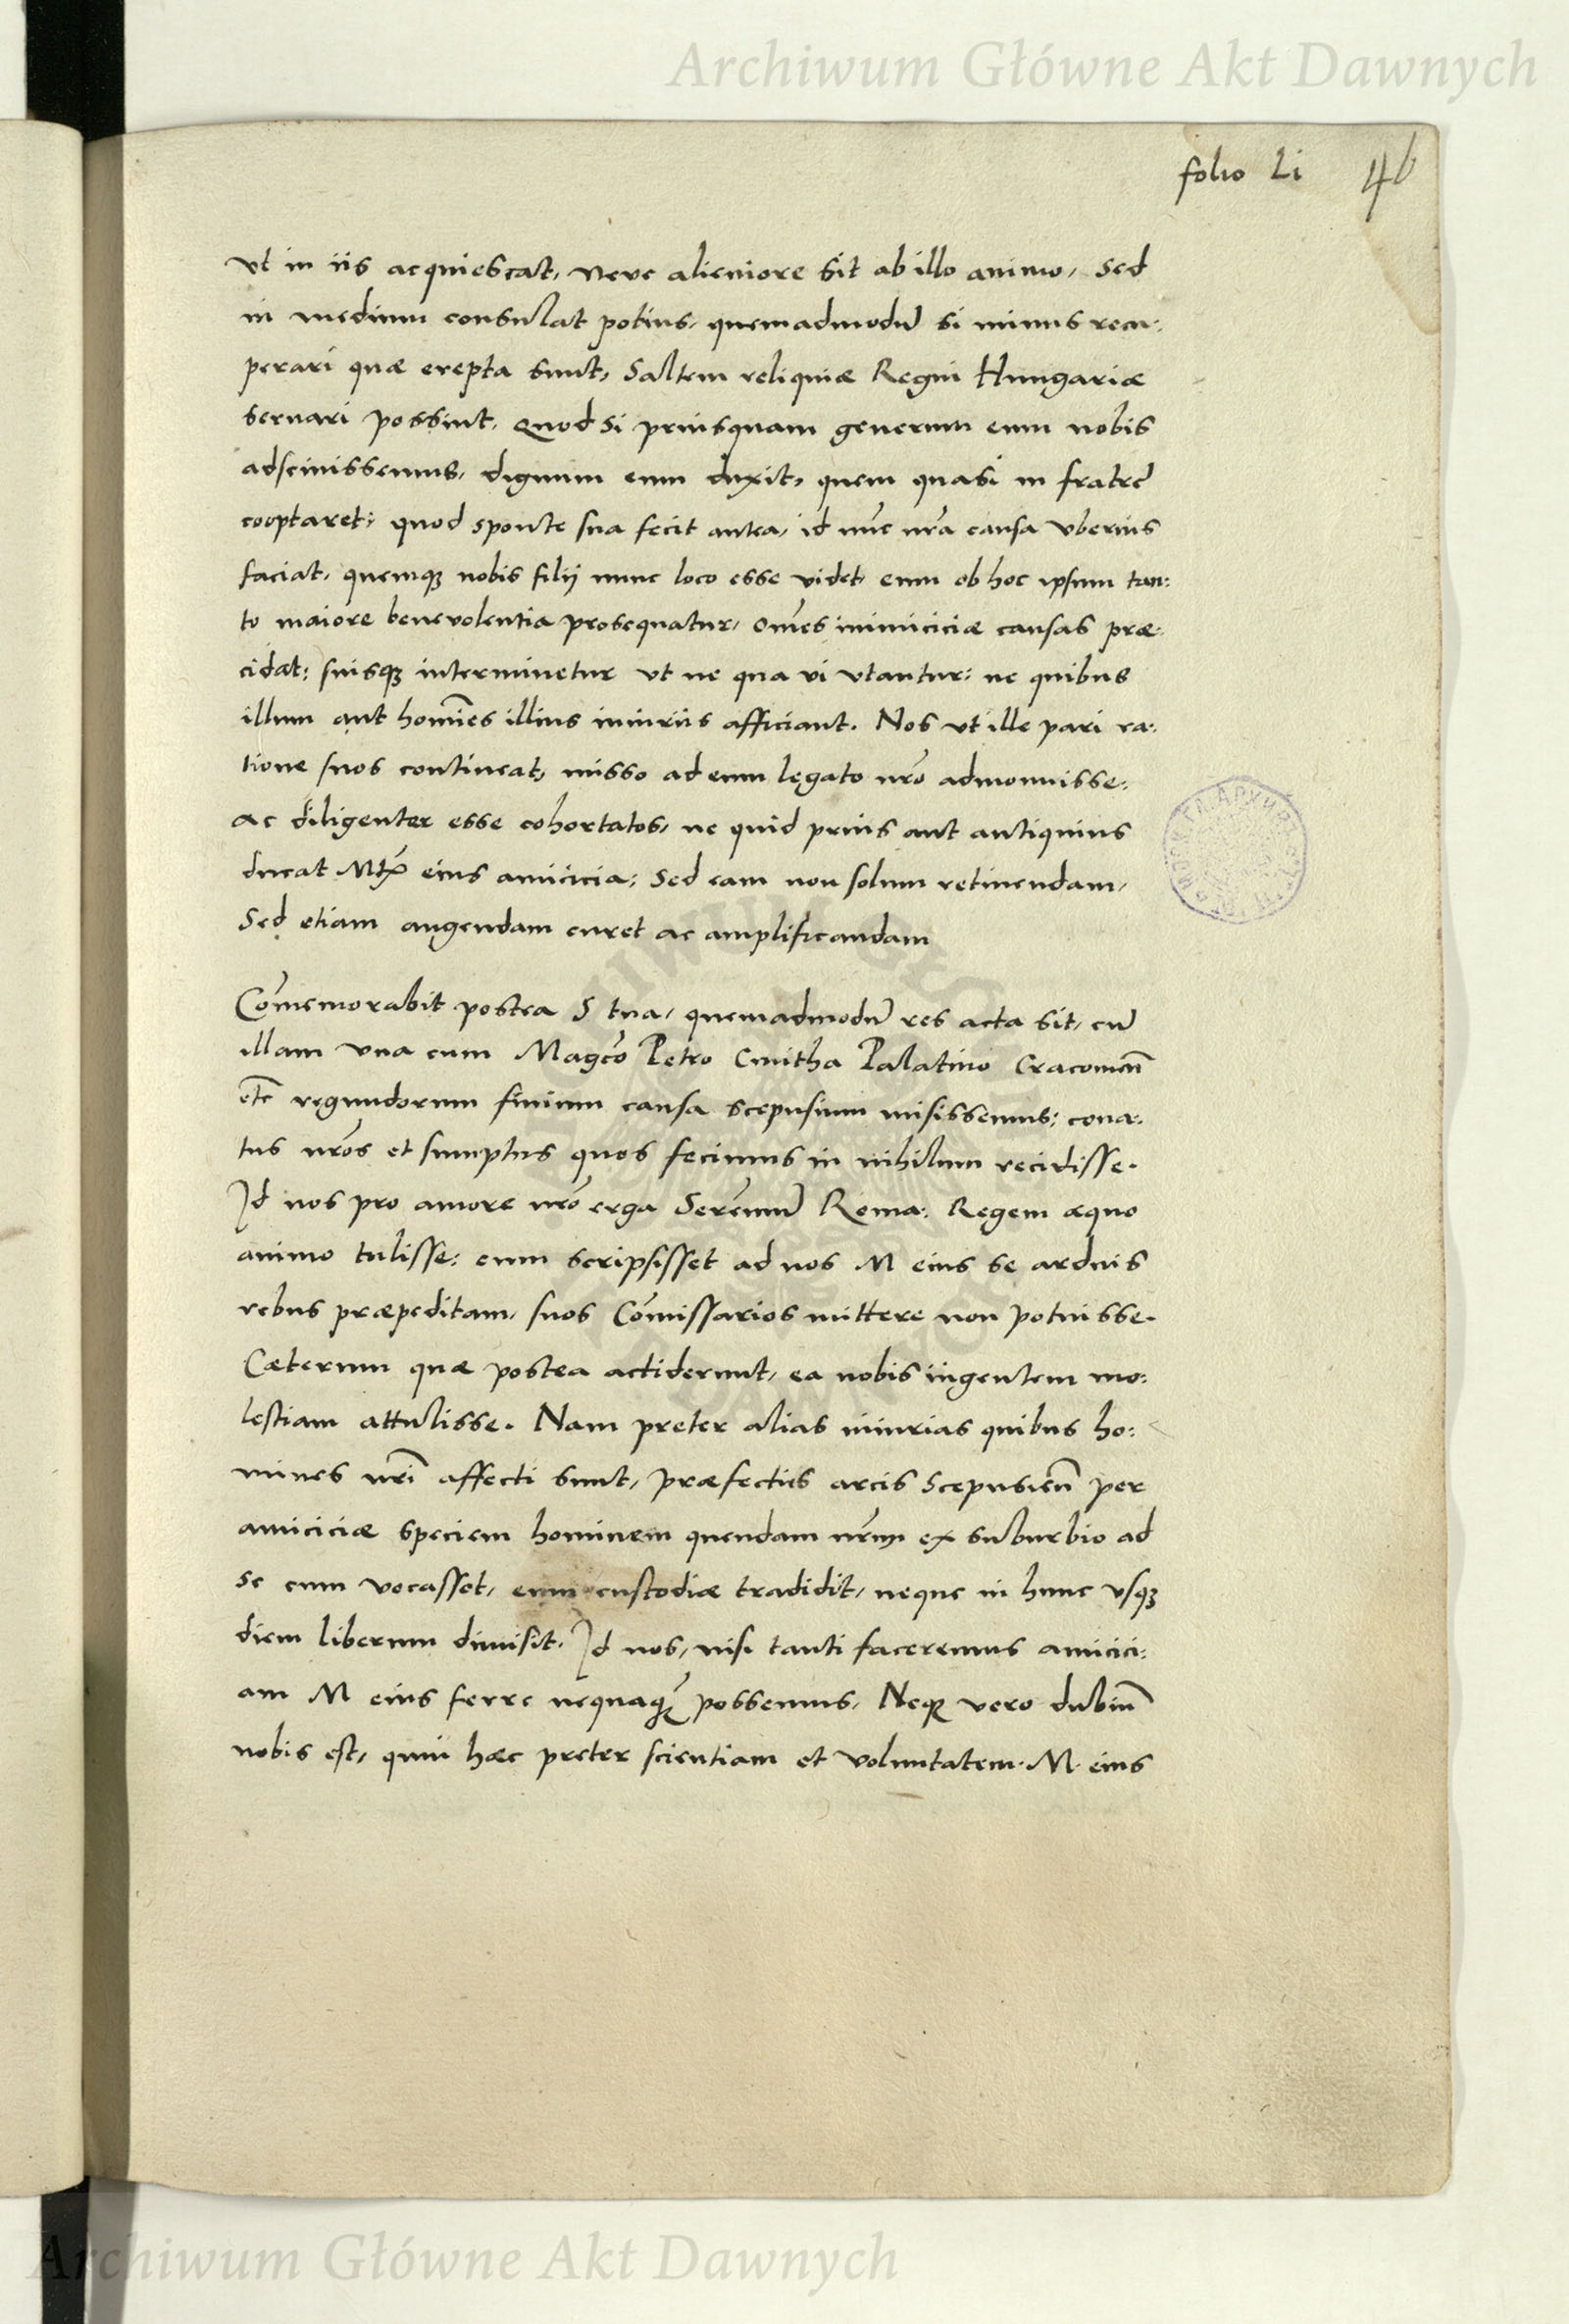 Archiwum Główne Akt Dawnych
folio Li 46
vt in iis acquiescat, neve alieniore sit ab illo animo, Sed
in medium consulat potius, quemadmodū si minus recu:
perari quæ erepta sunt, Saltem reliquiæ Regni Hungariæ
servari possint. Quod si priusquam generum eum nobis
adscivissemus, dignum eum duxit, quem quasi in fratrē
cooptaret; quod sponte sua fecit antea, id nūc nrā causa vberius
faciat, quemq; nobis filij nunc loco esse videt, eum ob hoc ipsum tan:
to maiore benevolentia prosequatur, om̄es inimiciciæ causas præ:
cidat: suisq; interminetur vt ne qua vi vtantur: ne quibus
illum aut homīes illius iniuriis afficiant. Nos vt ille pari ra:
tione suos contineat, misso ad eum legato nrō admonuisse:
ac diligenter esse cohortatos, ne quid prius aut antiquius
ducat Mtis eius amicicia: Sed eam non solum retinendam,
Sed etiam augendam curet ac amplificandam
Com̄emorabit postea S tua, quemadmodū res acta sit, cū
illam vna cum Magcō Petro Cmitha Palatino Cracovieñ
etc̄ regundorum finium causa Scepusium misissemus; cona:
tus nrōs et sumptus quos fecimus in nihilum recidisse.
Id nos pro amore nrō erga Serēmū Roma: Regem æquo
animo tulisse: cum scripsisset ad nos M eius se arduis
rebus præpeditam, suos Com̄issarios mittere non potuisse.
Cæterum quæ postea acciderunt, ea nobis ingentem mo:
lestiam attulisse. Nam preter alias iniurias quibus ho:
mines nrī affecti sunt, præfectus arcis Scepusieñ per
amiciciæ speciem hominem quendam nrūm ex suburbio ad
se cum vocasset, eum custodiæ tradidit, neque in hunc vsq;
diem liberum dimisit. Id nos, nisi tanti faceremus amicici:
am M eius ferre nequaq̄ possemus. Neq; vero dubiū
nobis est, quin hæc preter scientiam et voluntatem M eius
Archiwum Główne Akt Dawnych